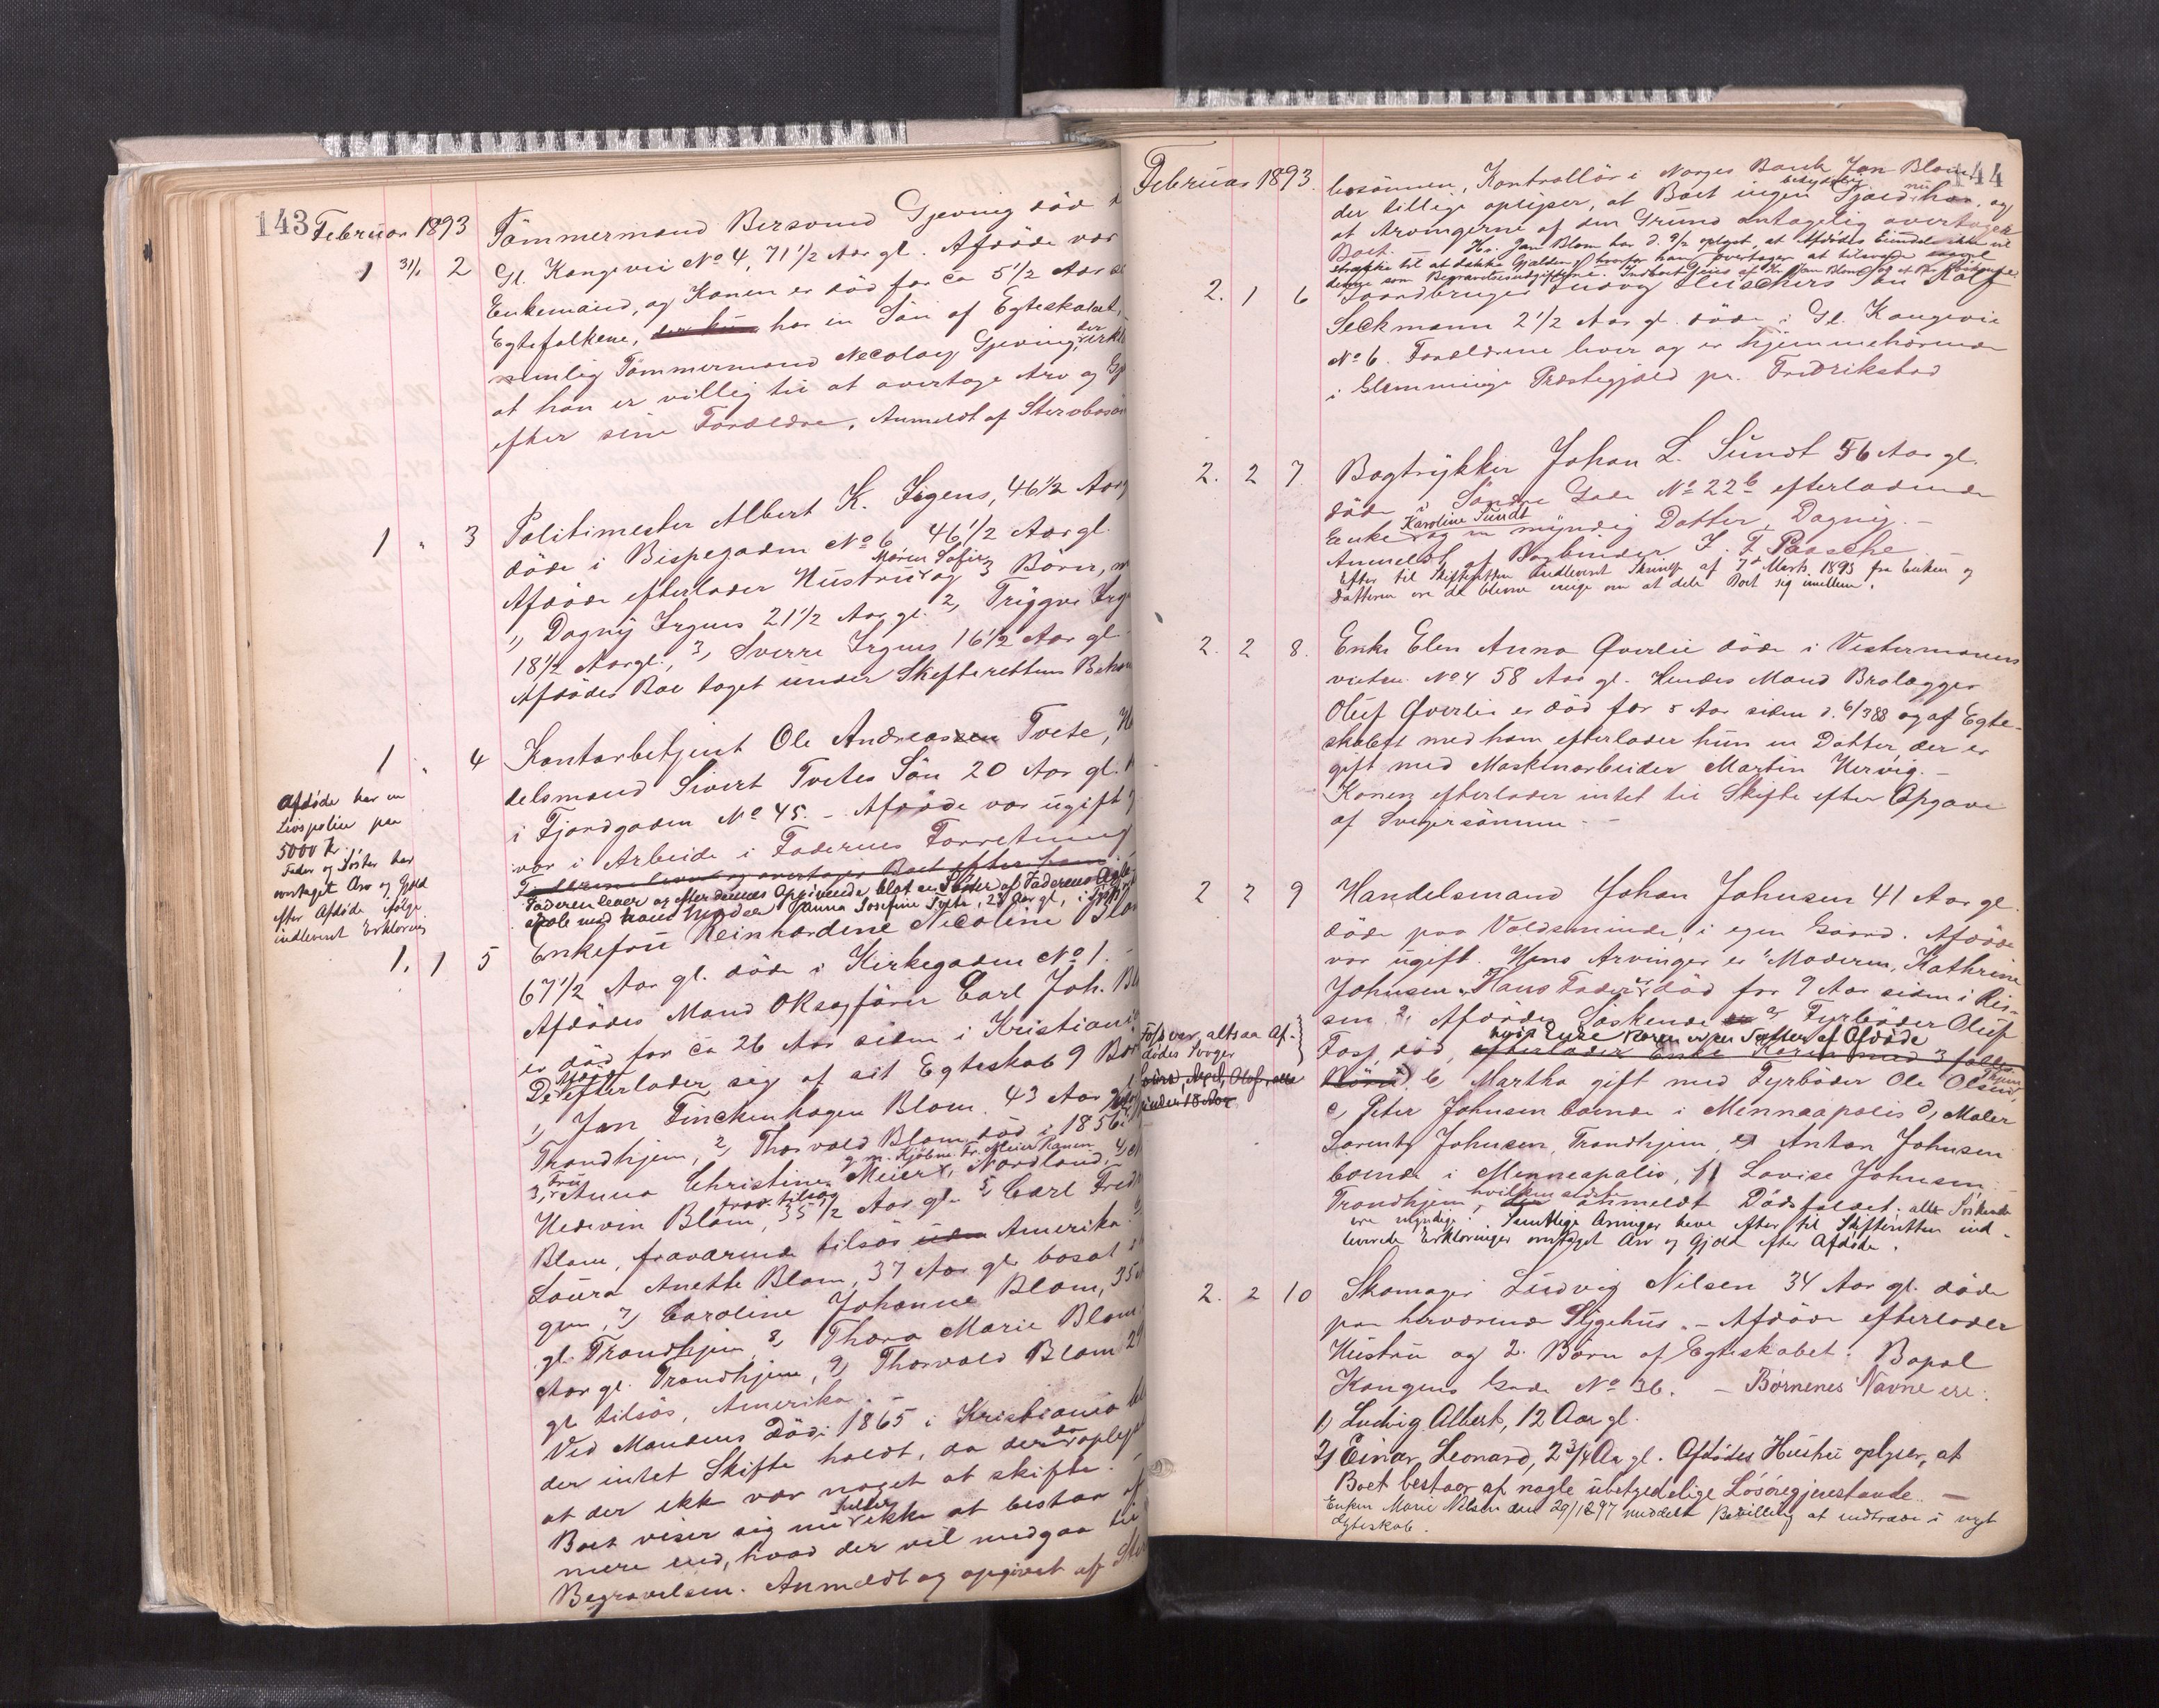 143 Februar 1893
1 31/1 2 Tömmermand Bersvend Gjeving död
Gl. Kongevei No 4, 71 1/2 Aar gl. Afdöde var
Enkemand, og Konen er död for ca 5 1/2 Aar
Egtefolkene, har en Sön af Egteskabet,
nemlig Tömmermand Necolay Gjeving, der
at han er villig til at overtage Arv og
efter sine Forældre. Anmeldt af
1 " 3 Politimester Albert K. 46 1/2
döde i Bispegaden No 6 46 1/2 Aar gl.
Afdöde efterlader Hustru Maren Sofie og 3 Börn,
1, Dagny 21 1/2 Aar gl. 2, Tryggve
18 1/2 Aar gl., 3, Sverre 16 1/2 Aar gl
Afdödes Bo taget under Skifterettens
1 " 4 Kontorbetjent Ole Andreas Tvete,
delsmand Sivert Tvetes Sön 20 Aar gl.
i Fjordgaden No 45. - Afdöde var ugift
var i Arbeide i Faderens Forretning
Faderen lever og efter dennes Opgivende blot en Söster af Faderens
skab med hans Moder Janna Josefine Tvete, 28 Aar gl,
Afdöde har en
Livspolice paa
5000 Kr.
Fader og Söster har
overtaget Arv og Gjæld
efter Afdöde ifølge
indleveret Erklæring
1. 1 5 Enkefru Reinhardine Nicoline
67 1/2 Aar gl. döde i Kirkegaden No 1. -
Afdödes Mand Oksagförer Carl Joh.
er död for ca 26 Aar siden i
Afdöde efterlader sig af sit Egteskab 9
1, Jan Finckenhagen Blom. 43 Aar
Trondhjem, 2, Thorvald Blom död i 1856
3, Fru Anna Christine Meier, Nordland,
Hedevin Blom, 35 1/2 Aar gl. 5, Carl
Blom, fraværende tilsös Amerika
Laura Anette Blom, 37 Aar gl. bosat
gen, 7, Caroline Johanne Blom, 35
gl. Trondhjem 8, Thora Marie Blom
Aar gl. Trondhjem, 9, Thorvald Blom 29
gl tilsös, Amerika. -
Ved Mandens Död i 1865 i Kristiania
der intet Skifte holdt, da der da
at der ikke var noget at skifte. -
Boet viser sig nu heller ikke at bestaa af
mere end, hvad der vil medgaa til
Begravelsen. Anmeldt og opgivet af
Februar 1893. 144
bosönnen, Kontrollör i Norges Bank Jan Blom
der tillige oplyser, at Boet ingen betydelig Gjæld nu har, og
at Arvingerne af den Grund antagelig overtager
Boet. Hr. Jan Blom har d. 9/2 oplyst, at Afdödes Eiendele ikke vil
strække til at dække Gjælden, hvorfor han overtager at tilsvare
denne som Begravelsesudgifterne.
2. 1 6 Gaardbruger Ludvig Sön Rolf
Seckmann 2 1/2 Aar gl. döde i Gl. Kongevei
No 6. Forældrene lever og er hjemmehörende
i Glemminge Præstegjæld pr. Fredrikstad
2. 2 7 Bogtrykker Johan L. Sundt 56 Aar gl.
döde i Söndre Gade No 22b efterladende
Enke Karoline Sundt og en myndig Datter, Dagny. -
Anmeldt af Bogbinder J. F. Paasche. -
Efter til Skifteretten Indleveret Skrivelse af 7de Marts 1893 fra Enken og
Datteren ere de blevne enige om at dele Boet sig imellem.
2. 2 8. Enke Elen Anna Qverlie döde i Vestermanns
veiten No 4 58 Aar gl. Hendes Mand Brolægger
Oluf Qverlie er död for 5 Aar siden d. 6/3 88 og af Egte-
skabet med ham efterlader hun en Datter der er
gift med Maskinarbeider Martin Hervig. -
Konen efterlader intet til Skifte efter Opgave
af Svigersönnen. -
2 2 9 Handelsmand Johan Johnsen 41 Aar gl.
döde paa Voldsminde, i egen Gaard. Afdöde
var ugift. Hans Arvinger er 1, Moderen, Kathrine
Johnsen. Hans Fader er död for 9 Aar siden i Ris-
sen 2, Afdödes Söskende a, Fyrböder Oluf
Foss, död, hvis Enke Karen er en Söster af Afdöde
efterlader Enke Karen med 3 fælles
Börn, b, Martha gift med Fyrböder Ole Olsen, Thjem
c, Peter Johnsen boende i Minneapolis d, Maler
Lorents Johnsen, Trondhjem e, Anton Johnsen
boende i Minneapolis, f, Lovise Johnsen,
Trondhjem, hvilken sidste anmeldt Dödsfaldet. alle Söskende
ere myndige. Samtlige Arvinger have efter til Skifteretten ind-
leverede Erklæringer overtaget Arv og Gjæld efter Afdöde.
Foss var altsaa Af-
dödes Svoger
Olaf, alle
under 18 Aar
2. 2 10 Skomager Ludvig Nilsen 34 Aar gl. döde
paa herværende Sygehus. - Afdöde efterlader
Hustru og 2. Börn af Egteskabet. Bopæl
Kongens Gade No 36. - Børnenes Navne ere:
1) Ludvig Albert, 12 Aar gl.
2) Einar Leonard, 2 3/4 Aar gl. Afdødes Hustru oplyser, at
Boet bestaar af nogle ubetydelige Løsøregjenstande. -
Enken Marie Nilsen den 29/1 97 meddelt Bevilling at indtræde i nyt
Egteskab.